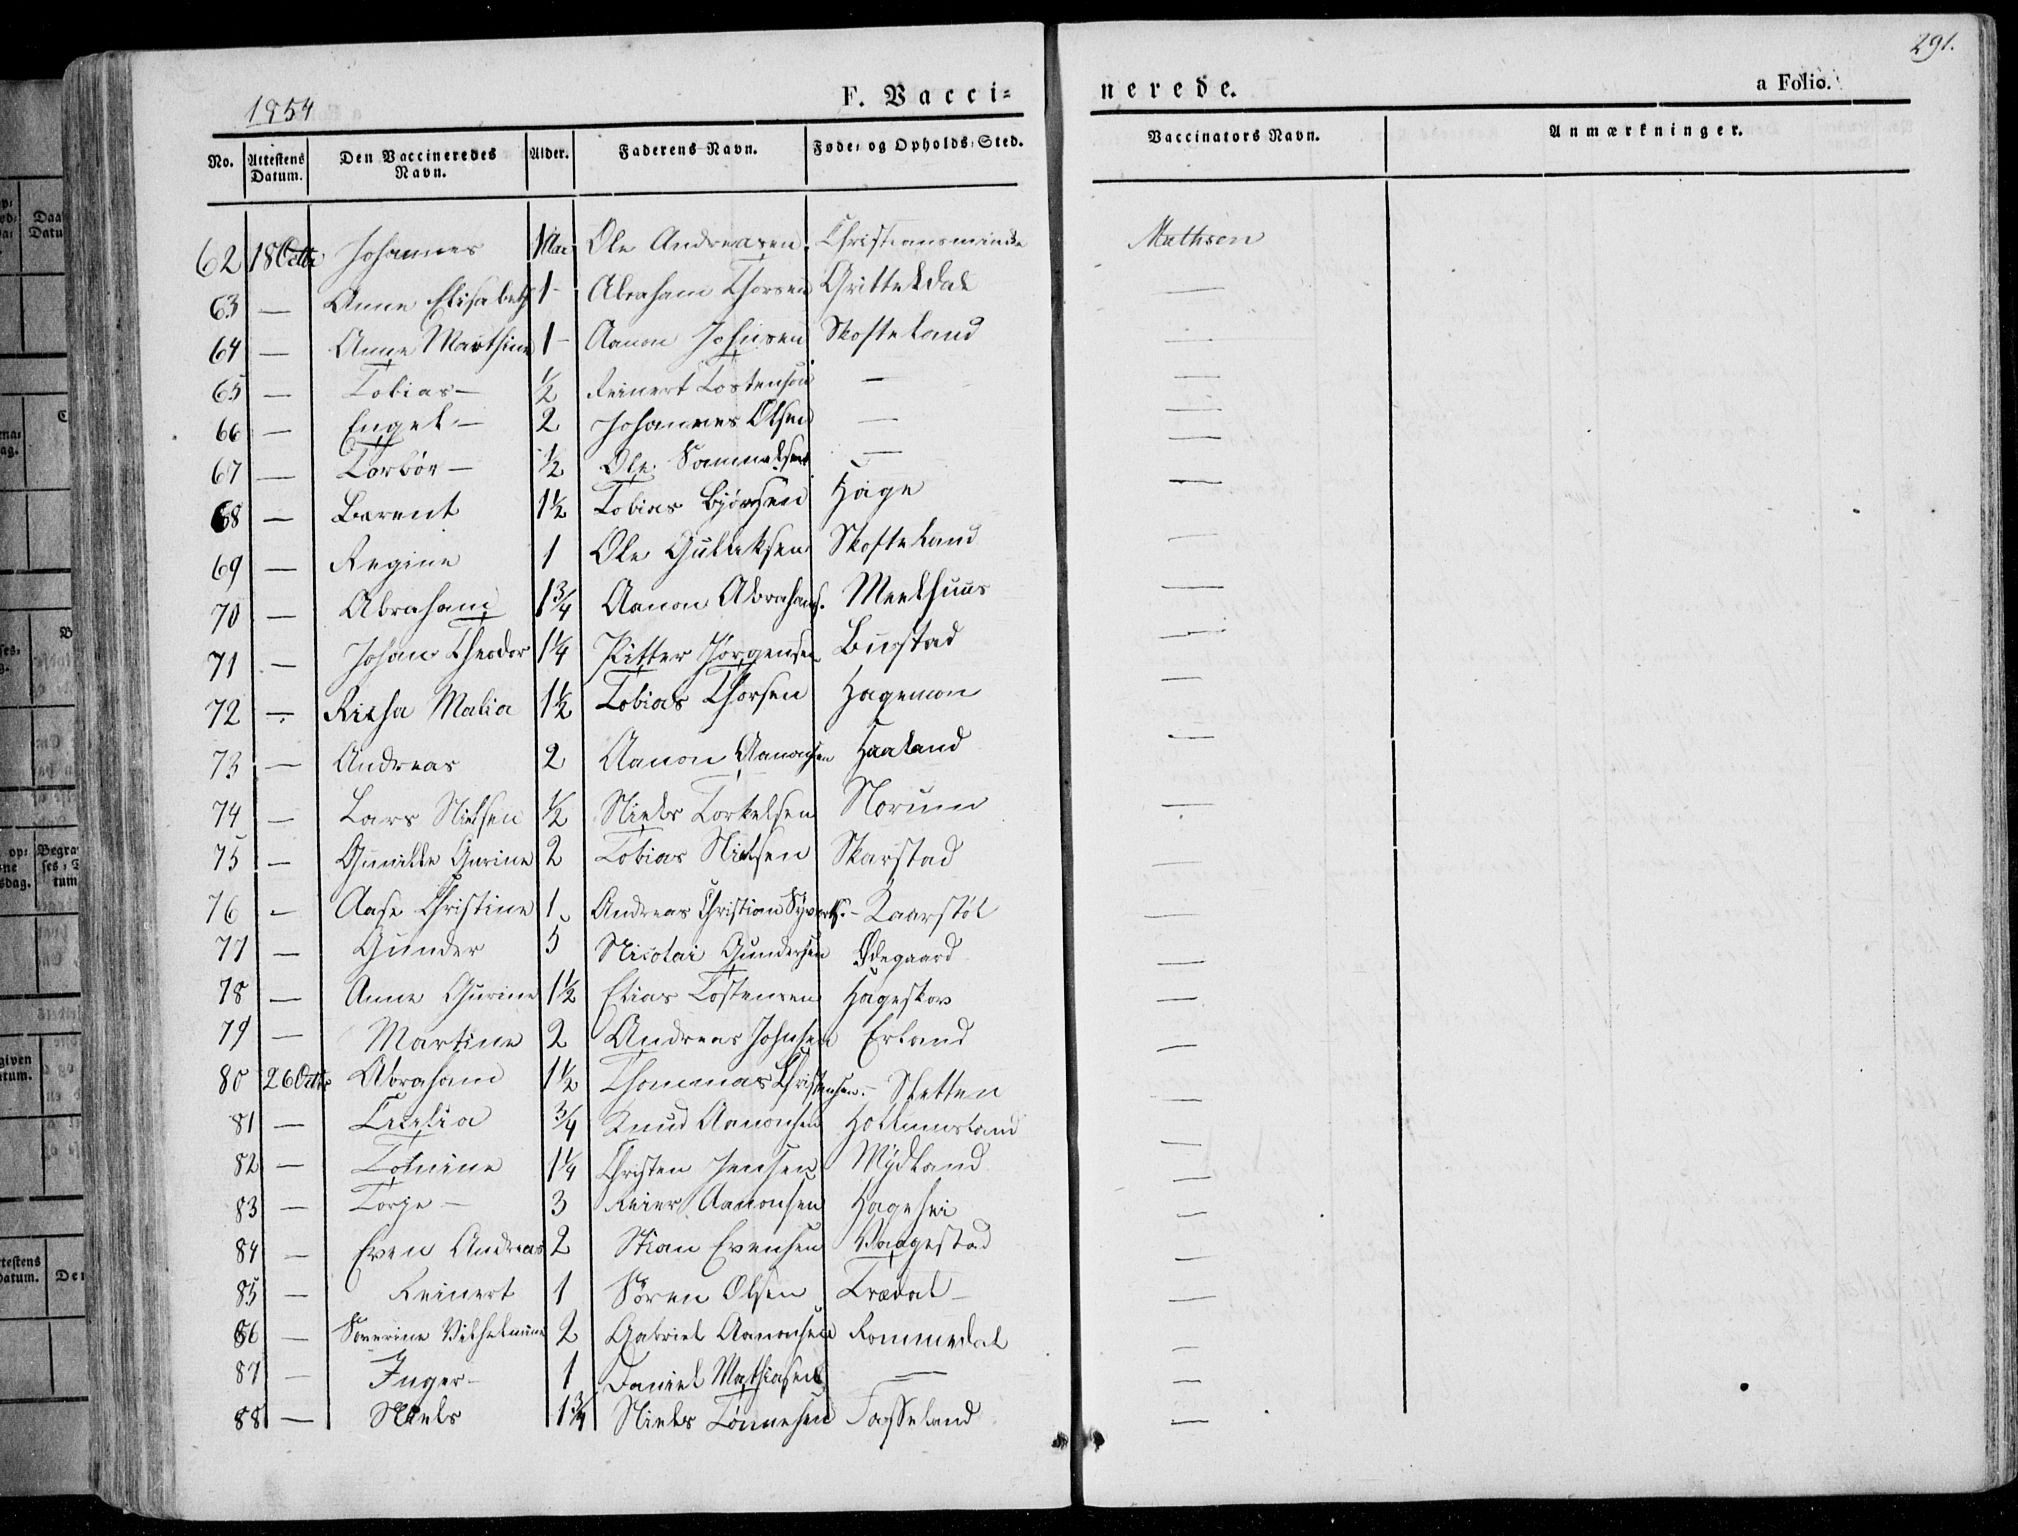 291.
1854
F. Vacci= nerede. a Folio.
No. Attestens Datum. Den Vaccineredes Navn. Alder. Faderens Navn. Føde= og Opholds=Sted. Vaccinators Navn. Anmærkninger.
62 18 Octbr Johannes 1 Ole Andreasen Christiansminde Mathson
63 — Anne Elisabeth 1 Abraham Thorsen Grittekdal —
64 — Anne Marthine 1 Aanon Johnsen Skofteland —
65 — Tobias — ½ Reinert Tostensen — —
66 — Engel — 2 Johannes Olsen — —
67 — Torbør — ½ Ole Samuelsen — —
68 — Berent 1½ Tobias Bjørnsen Hage —
69 — Regine 1 Ole Gulleksen Skofteland —
70 — Abraham 1¾ Aanon Abrahams. Meelhuus —
71 — Johan Theodor 1¼ Pitter Jørgensen Bustad —
72 — Malia 1½ Tobias Thorsen Hagemon —
73 — Andreas 2 Aanon Aanonsen Haaland —
74 — Lars Nielsen ½ Niels Torkelsen Norum —
75 — Gunille Gurine 2 Tobias Nielsen Skarstad —
76 — Aase Christine 1 Andreas Christian Syverts. — Kaarstøl —
77 — Gunder 5 Nicolai Gundersen Ødegaard —
78 — Anne Gurine 1½ Elias Tostensen Hageskov —
79 — Martine 2 Andreas Johnsen Erland —
80 26 Octbr Abraham 1½ Thommas Christensen. — Sletten —
81 — Cecelia ¾ Knud Aanonsen Hollumsland —
82 — Tomine 1¼ Christen Jensen Mydland —
83 — Torje — 3 Reier Aanonsen Hagehei —
84 — Even Andreas 2 Stian Evensen Vaagestad —
85 — Reinert 1 Sören Olsen Trædal — —
86 — Severine Vilhelmine 2 Gabriel Aanonsen Rommedal —
87 — Inger — 1 Daniel Mathiasen — —
88 — Niels 1¾ Niels Tönnesen Fosseland —